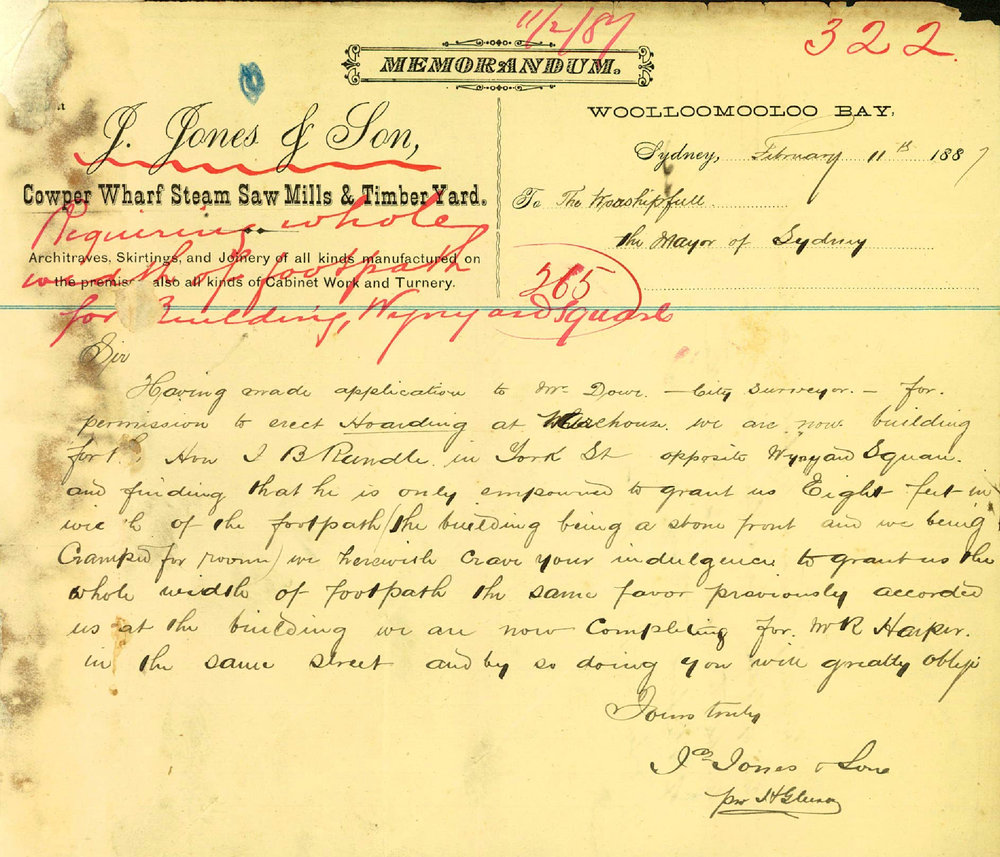 11/2/87
322
MEMORANDUM.
J. Jones & Son,
Cowper Wharf Steam Saw Mills & Timber Yard.
Architraves, Skirtings, and Joinery of all kinds manufactured on
the premises also all kinds of Cabinet Work and Turnery.
WOOLLOOMOOLOO BAY,
Sydney, February 11th 1887
To The Worshipfull
the Mayor of Sydney
Requiring whole
width of footpath
for Building, Wynyard Square
265
Sir
Having made application to Mr Dowe - City Surveyor. - for.
permission to erect Hoarding at Warehouse we are now building
for Hon J B Rundle in York St opposite Wynyard Square.
and finding that he is only empowered to grant us Eight feet in
width of the footpath (the building being a stone front and we being
Cramped for room) we herewith Crave your indulgence to grant us the
whole width of footpath the same favor previously accorded
us at the building we are now Completing for. Mr R Harper.
in the same street and by so doing you will greatly oblige
Yours truly
Jas Jones & Sone
per